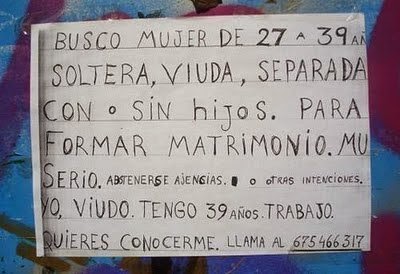 BUSCO MUJER DE 27 A 39 AÑ
SOLTERA, VIUDA, SEPARADA
CON o SIN hijos. PARA
FORMAR MATRIMONIO. MU
SERIO. ABSTENERSE AJENCIAS. o OTRAS INTENCIONES.
yo, VIUDO. TENGO 39 AÑOS. TRABAJO.
QUIERES CONOCERME. LLAMA AL 675466317